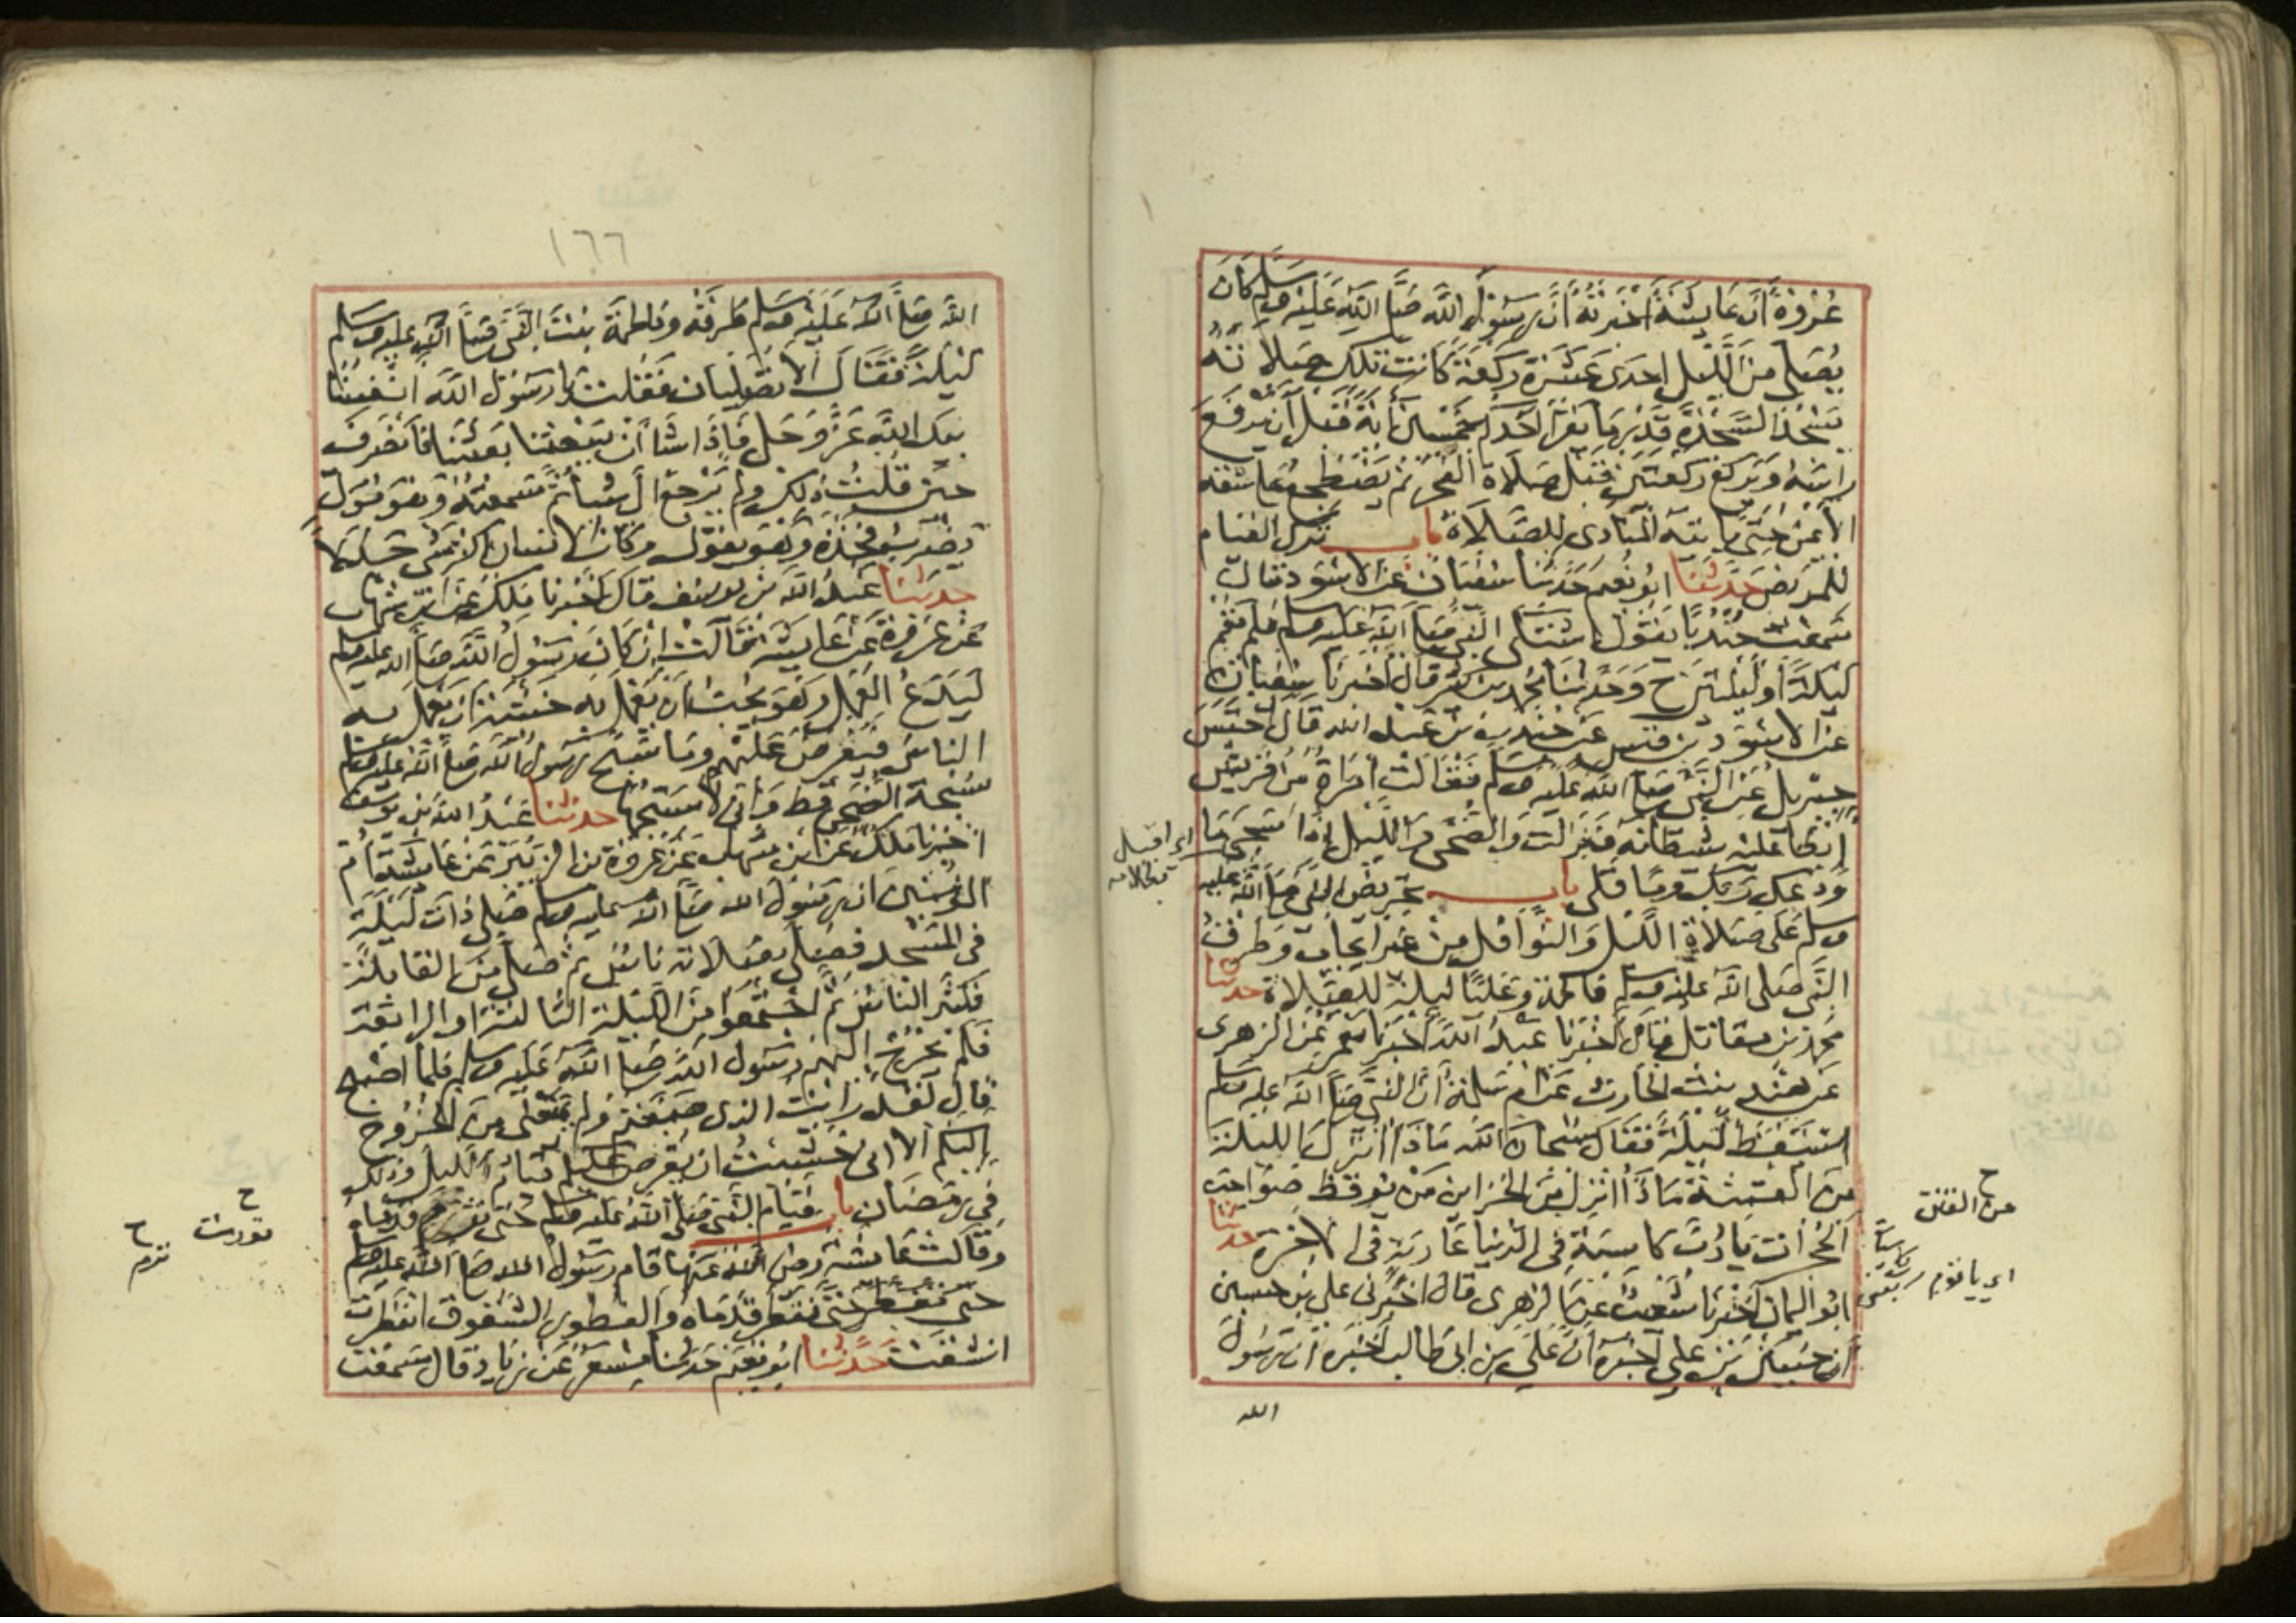 عُرْوَةَ أَنَّ عَائِشَةَ أَخْبَرَتْهُ أَنَّ رَسُولَ اللَّهِ صَلَّى اللَّهُ عَلَيْهِ وَسَلَّمَ كَانَ
يُصَلِّي مِنَ اللَّيْلِ احدى عَشْرَةَ رَكْعَةً كَانَتْ تِلْكَ صَلَاتَهُ
يَسْجُدُ السَّجْدَةَ قَدْرَ مَا يَقْرَأُ أَحَدُكُمْ خَمْسِينَ آيَةً قَبْلَ أَنْ يَرْفَعَ
رَاسَهُ وَيَرْكَعُ رَكْعَتَيْنِ قَبْلَ صَلَاةِ الْفَجْرِ ثُمَّ يَضْطَجِعُ عَلَى شِقِّهِ
الْأَيْمَنِ حَتَّى يَاتِيَهُ الْمُنَادِي لِلصَّلَاةِ باب ترك القيام
للمريض حدثنا ابو نعيم حدثنا سفيان عن الاسود قال
سمعت جندبا يقول اشتكى النبي صلى الله عليه وسلم فلم يقم
ليلة او ليلتين ح وحدثنا محمد بن كثير قال اخبرنا سفيان
عن الاسود بن قيس عن جندب بن عبد الله قال احتبس
جبريل عن النبي صلى الله عليه وسلم فقالت امراة من قريش
ابطا عليه شيطانه فنزلت والضحى والليل اذا سجى ما
ودعك ربك وما قلى باب تحريض النبي صلى الله عليه
وسلم على صلاة الليل والنوافل من غير ايجاب وطرق
النبي صلى الله عليه وسلم فاطمة وعليا ليلة للصلاة حدثنا
محمد بن مقاتل قال اخبرنا عبد الله اخبرنا معمر عن الزهري
عن هند بنت الحارث عن ام سلمة ان النبي صلى الله عليه وسلم
استيقظ ليلة فقال سبحان الله ماذا انزل الليلة
من الفتنة ماذا انزل من الخزاين من يوقظ صواحب
الحجرات يا رب كاسية في الدنيا عارية في الاخرة حدثنا
ابو اليمان اخبرنا شعيب عن الزهري قال اخبرني علي بن حسين
ان حسين بن علي اخبره ان علي بن ابي طالب اخبره ان رسول
الله
من الفتن ح
اي يا قوم
١٦٦
الله صلى الله عليه وسلم طرقه وفاطمة بنت النبي صلى الله عليه وسلم
ليلة فقال الا تصليان فقلت يا رسول الله انفسنا
بيد الله عز وجل فاذا شا ان يبعثنا بعثنا فانصرف
حين قلت ذلك ولم يرجع الي شيا ثم سمعته وهو مول
يضرب فخذه وهو يقول وكان الانسان اكثر شي جدلا
حدثنا عبد الله بن يوسف قال اخبرنا ملك عن ابن شهاب
عن عروة عن عايشة قالت ان كان رسول الله صلى الله عليه وسلم
ليدع العمل وهو يحب ان يعمل به خشية ان يعمل به
الناس فيفرض عليهم وما سبح رسول الله صلى الله عليه وسلم
سبحة الضحى قط واني لاسبحها حدثنا عبد الله بن يوسف
اخبرنا ملك عن ابن شهاب عن عروة بن الزبير عن عايشة ام
المومنين ان رسول الله صلى الله عليه وسلم صلى ذات ليلة
في المسجد فصلى بصلاته ناس ثم صلى من القابلة
فكثر الناس ثم اجتمعوا من الليلة الثالثة او الرابعة
فلم يخرج اليهم رسول الله صلى الله عليه وسلم فلما اصبح
قال لقد رايت الذي صنعتم ولم يمنعني من الخروج
اليكم الا اني خشيت ان يفرض عليكم قيام الليل وذلك
في رمضان باب قيام النبي صلى الله عليه وسلم حتى قدماه
وقالت عائشة رضي الله عنها قام رسول الله صلى الله عليه وسلم
حتى تفطر قدماه والفطور الشقوق انفطرت
انشقت حدثنا ابو نعيم حدثنا مسعر عن زياد قال سمعت
ح
ترم